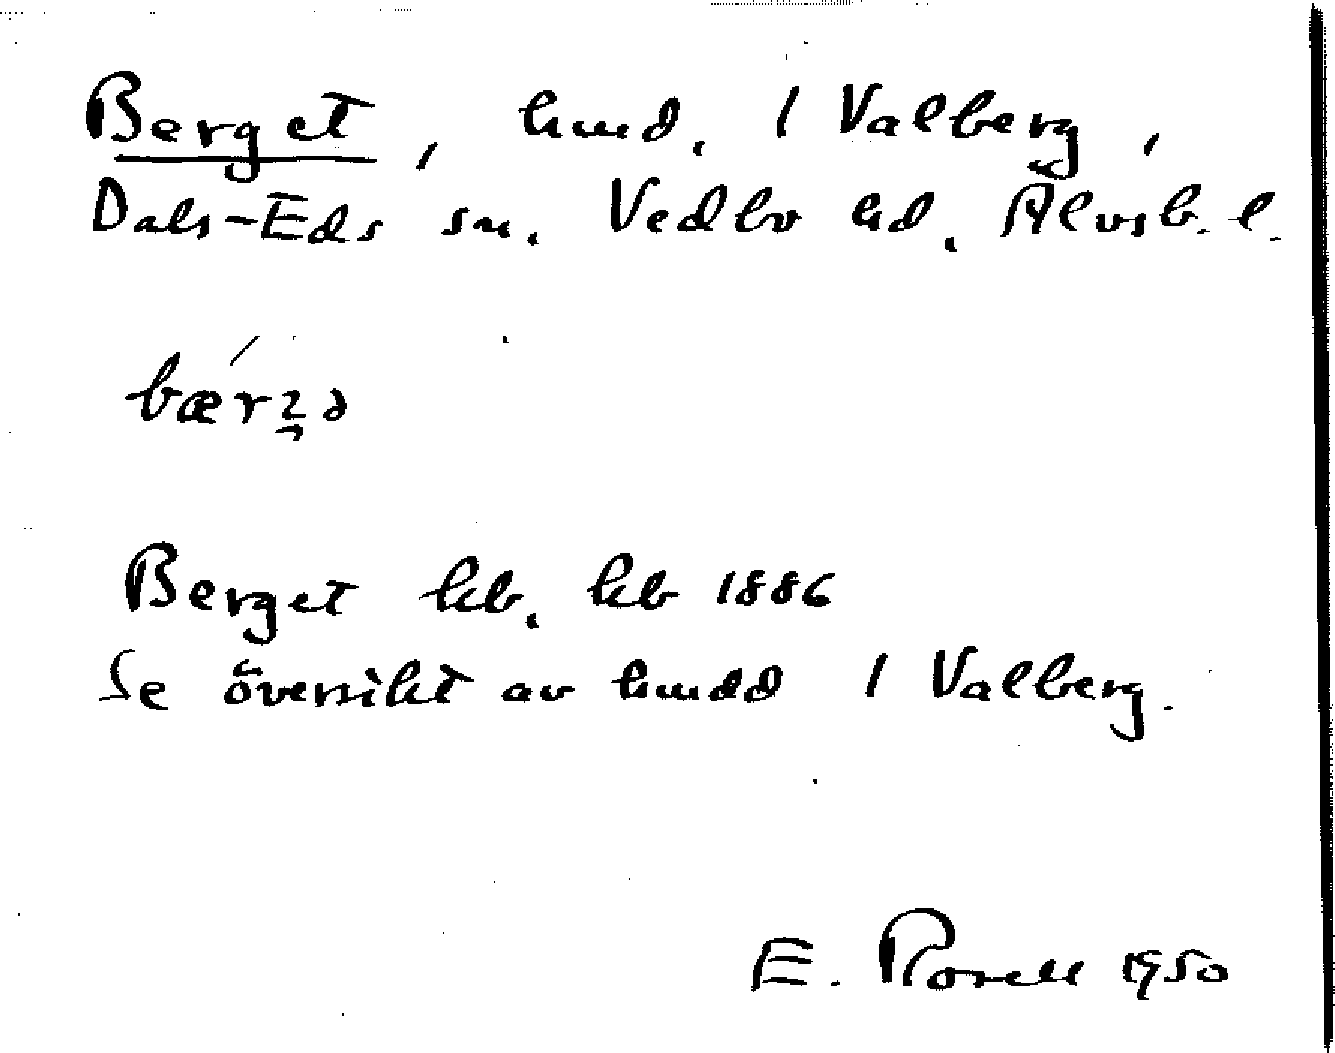 Berget, hmd. 1 Valberg,
Dals-Eds sn. Vedbo hd. Älvsb. l.
bærgə
Berget hb. kb 1886
Se översikt av hmdd 1 Valberg.
E. Rosell 1950